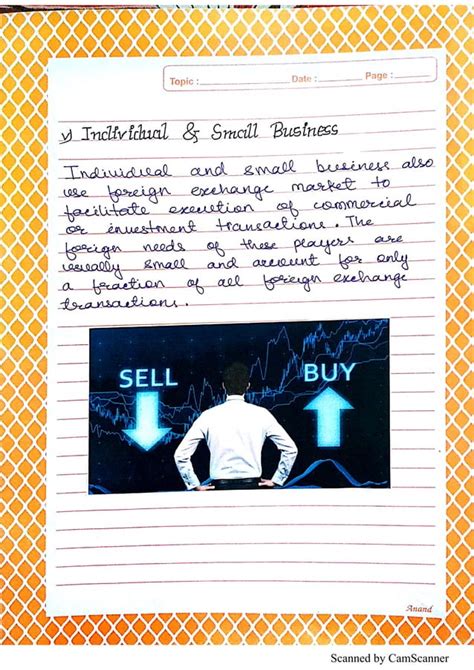 Topic : Date : Page :
v) Individual & Small Business
Individual and small business also
use foreign exchange market to
facilitate execution of commercial
or investment transactions. The
foreign needs of these players are
usually small and account for only
a fraction of all foreign exchange
transactions.
SELL BUY
Anand
Scanned by CamScanner